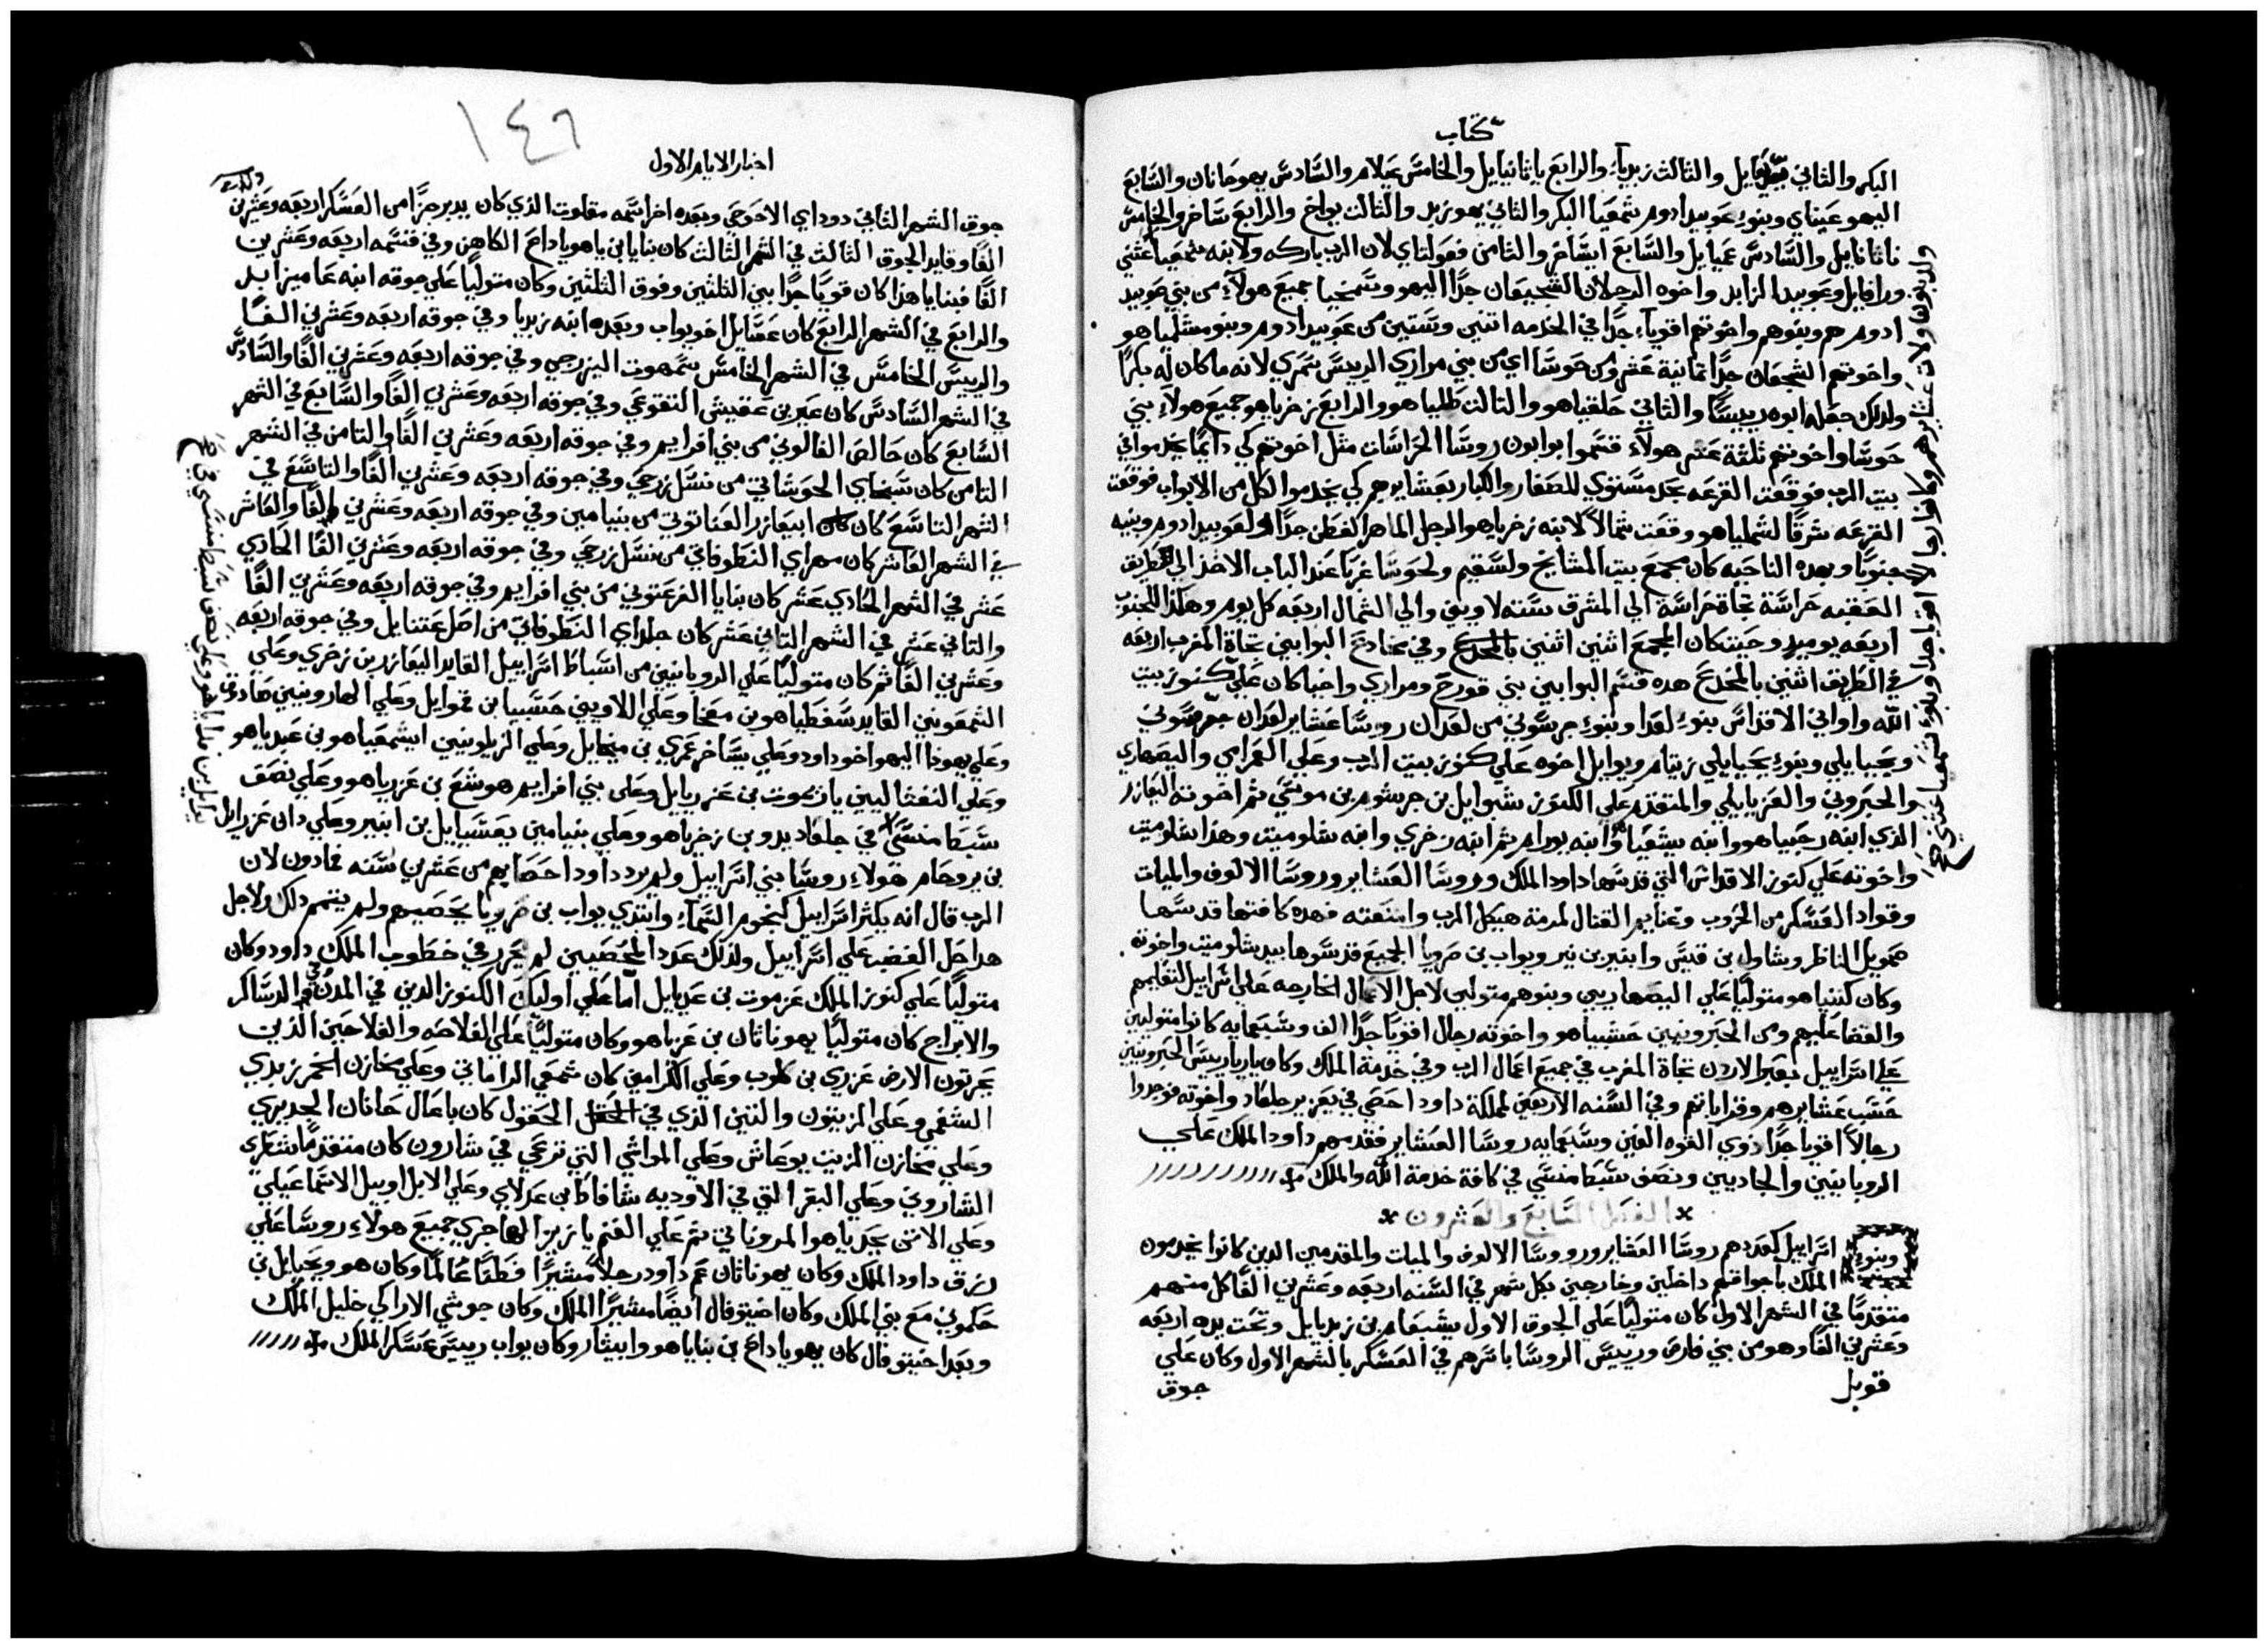 كتاب
البكر والثاني يديعاييل والثالث زبديآء والرابع ياثانياييل والخامس عيلام والسادس يهوحانان والسابع
اليهوعيناي وبنوء عوبيد ادوم شمعيا البكر والثاني يهوزبد والثالث يواخ والرابع ساخر والخامس
ناثاناييل والسادس عمياييل والسابع ايساخر والثامن فعولتاي لان الرب باركه ولابنه شمعيا عثني
ورافاييل وعوبيد الزابد واخوه الرجلان الشجيعان جدًا اليهو وسمخيا جميع هولآء من بني عوبيد
ادوم هم وبنوهم واخوتهم اقوياء جدًا في الخدمه اتنين وستين من عوبيد ادوم وبنو مشلميا هو
واخوتهم الشجعان جدًا تمانية عشر ومن حوسا اي من بني مراري الرييس شمري لانه ما كان له بكرًا
ولدلك جعله ابوه رييسًا والثاني حلقياهو والتالت طلبياهو والرابع زخرياهو جميع هولآء بني
حوسا واخوتهم ثلثة عشر هولآء قسموا بوابون روسا الحراسات مثل اخوتهم كي دايمًا يخدموا في
بيت الرب فوقعت القرعه بحد مستوي للصغار والكبار بعشايرهم كي يخدموا لكل من الابواب فوقعت
القرعه شرقًا لشملياهو ووقعت شمالًا لابنه زخرياهو الرجل الماهر الفطن جدًا ولعوبيد ادوم وبنيه
جنوبًا وبهده الناحيه كان مجمع بيت المشايخ ولسقيم ولحوسا غربًا عند الباب الاخذ الي طريق
العقبه حراسة تجاة حراسة الي المشرق سته لاويين والي الشمال اربعه كل يوم وهكذا للجنوب
اربعه يوميد وحيت كان المجمع اثنين اثنين وفي مخادع البوابين تجاة المغرب اربعه
في الطريق اثنين بالمخدع هده قسم البوابين بني قورح ومراري واخيا كان علي كنوز بيت
الله واواني الاقداس بنوء لعدا وبنوء جرسوني من لعدان روسا عشاير لعدان جرسوني
ويحيايلي وبنوء يحيايلي زيتام ويوايل اخوه علي كنوز بيت الرب وعلي العمرامي واليصهاري
والحبروني والعزياييلي والمتقدم علي الكنوز شبوايل بن جرشوم بن موسي ثم اخوته اليعازر
الذي ابنه رحبياهو وابنه يشعيا وابنه يورام ثم ابنه زخري وابنه شلوميت وهذا شلوميت
واخوته علي كنوز الاقداس التي قدسها داود الملك وروسا العشاير وروسا الالوف والميات
وقواد العسكر من الحروب وغنايم القتال لمرمة هيكل الرب وامتعته فهده كافتها قدسها
صمويل الناظر وشاول بن قيس وابنير بن نير ويواب بن صرويا الجميع قدسوها بيد شلوميت واخوته
وكان كننياهو متوليًا علي اليصهاريين وبنوهم متولين لاجل الاعمال الخارجه علي اسراييل لتعليمهم
والقضا عليهم ومن الحبرونيين حشبياهو واخوته رجال اقويا جدًا الف وسبعمايه كانوا متوليين
علي اسراييل بعبر الاردن تجاة المغرب في جميع اعمال الرب وفي خدمة الملك وكان ياريا رييس الحبرونيين
حسب عشايرهم وقراباتهم وفي السنه الاربعين لمملكة داود احصي في يعزير جلعاد واخوته فوجدوا
رجالًا اقويا جدًا ذوي القوه الفين وسبعمايه روسا العشاير فقدمهم داود الملك علي
الروبانيين والجاديين ونصف سبط منسي في كافة خدمة الله والملك
الفصل السابع والعشرون
وبنوء اسراييل كعددهم روسا العشاير وروسا الالوف والميات والمقدمين الدين كانوا يخدموه
الملك باجواقهم داخلين وخارجين بكل شهر في السنه اربعه وعشرين الفًا كل منهم
متقدمًا في الشهر الاول كان متوليًا علي الجوق الاول يشبعام بن زبديايل وتحت يده اربعه
وعشرين الفًا وهو من بني فارص ورييس الروسا باسرهم في العسكر بالشهر الاول وكان علي
قوبل
جوق
١٤٦
اخبار الايام الاول
جوق الشهر الثاني دوداي الاحوحي وبعده اخر اسمه مقلوت الذي كان يدبر جزًا من العسكر اربعه وعشرين
الفًا وقايد الجوق الثالث في الشهر الثالث كان بنايا بن ياهوياداع الكاهن وفي قسمه اربعه وعشرين
الفًا فبنايا هذا كان قويًا جدًا بين الثلثين وفوق الثلثين وكان متوليًا علي جوقه ابنه عاميزابد
والرابع في الشهر الرابع كان عسايل اخو يواب وبعده ابنه زبديا وفي جوقه اربعه وعشرين الفًا
والرييس الخامس في الشهر الخامس سمهوت اليزرحي وفي جوقه اربعه وعشرين الفًا والسادس
في الشهر السادس كان عير بن عقيش التقوعي وفي جوقه اربعه وعشرين الفًا والسابع في الشهر
السابع كان حالص الفالوني من بني افرايم وفي جوقه اربعه وعشرين الفًا والتامن في الشهر
التامن كان سبخاي الحوشاتي من نسل زرحي وفي جوقه اربعه وعشرين الفًا والتاسع في
الشهر التاسع كان ابيعازر العناتوتي من بنيامين وفي جوقه اربعه وعشرين الفًا والعاشر
في الشهر العاشر كان مهراي النطوفاتي من نسل زرحي وفي جوقه اربعه وعشرين الفًا الحادي
عشر في الشهر الحادي عشر كان بنايا الفرعتوني من بني افرايم وفي جوقه اربعه وعشرين الفًا
والتاني عشر في الشهر التاني عشر كان حلداي النطوفاتي من اصل عتنايل وفي جوقه اربعه
وعشرين الفًا ثم كان متوليًا علي الروبانيين من اسباط اسراييل القايد اليعازر بن زخري وعلي
الشمعونيين القايد سفطياهو بن معخا وعلي اللاويين حشبيا بن قموايل وعلي الهارونيين صادوق
وعلي يهودا اليهو اخو داود وعلي يساخر عمري بن ميخايل وعلي الزبلونيين ايشمعياهو بن عبدياهو
وعلي النفثاليين ياريموت بن عزريايل وعلي بني افرايم هوشع بن عزرياهو وعلي نصف
سبط منسي في جلعاد يدو بن زخرياهو وعلي بنيامين يعسيايل بن ابنير وعلي دان عزرايل
بن يروحام هولاء روسا بني اسراييل ولم يرد داود احصايهم من عشرين سنه فمادون لان
الرب قال انه يكثر اسراييل كنجوم السمآء وابتدي يواب بن صرويا يحصيهم ولم يتمم دلك ولاجل
هدا حل الغضب علي اسراييل ولذلك عدد المحصيين لم يحرر في خطوب الملك داود وكان
متوليًا علي كنوز الملك عزموت بن عديايل اما علي اوليك الكنوز الدين في المدن والدساكر
والابراج كان متوليًا يهوناثان بن عزياهو وكان متوليًا علي الفلاحه والفلاحين الذين
يحرتون الارض عزري بن كلوب وعلي الكرامين كان شمعي الراماتي وعلي مخازن الخمر زبدي
الشفمي وعلي الزيتون والتين الذي في الحقول كان باعال حانان الجديري
وعلي مخازن الزيت يوعاش وعلي المواشي التي ترعي في شارون كان متقدمًا شطري
الشاروني وعلي البقر التي في الاوديه شافاط بن عدلاي وعلي الابل اوبيل الاسماعيلي
وعلي الاتن يحدياهو المروناتي ثم علي الغنم يازيز الهاجري جميع هولاء روسا علي
رزق داود الملك وكان يهوناثان عم داود رجلًا مشيرًا فطنًا عالمًا وكان هو ويحيايل بن
حكموني مع بني الملك وكان احيتوفال ايضًا مشيرًا الملك وكان حوشي الاراكي خليل الملك
وبعد احيتوفال كان يهوياداع بن بناياهو وابيثار وكان يواب رييس عسكر الملك